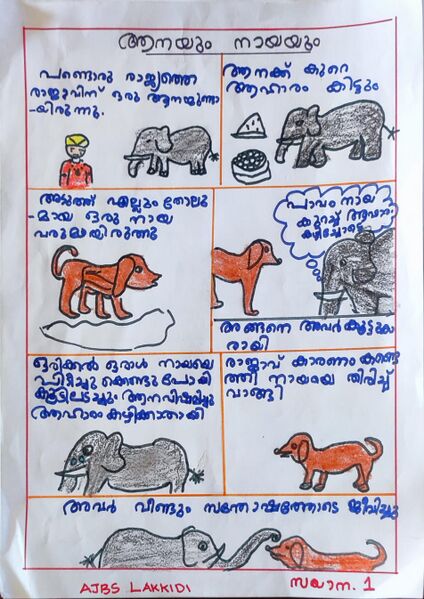 ആനയും നായയും
പണ്ടൊരു രാജ്യത്തെ
രാജാവിന് ഒരു ആനയുണ്ടാ
-യിരുന്നു.
ആനക്ക് കുറെ
ആഹാരം കിട്ടും
അടുത്ത് എല്ലും തോലു
-മായ ഒരു നായ
വരുമായിരുന്നു
പാവം നായ
കുറച്ച് ആഹാരം
കഴിച്ചോട്ടെ
അങ്ങനെ അവർ കൂട്ടുകാ
രായി
ഒരിക്കൽ ഒരാൾ നായയെ
പിടിച്ചു കൊണ്ടുപോയി
കൂട്ടിലടച്ചും ആന വിഷമിച്ചു
ആഹാരം കഴിക്കാതായി
രാജാവ് കാരണം കണ്ടെ
ത്തി നായയെ തിരിച്ച്
വാങ്ങി
അവർ വീണ്ടും സന്തോഷത്തോടെ ജീവിച്ചു
AJBS LAKKIDI
സയാന. 1